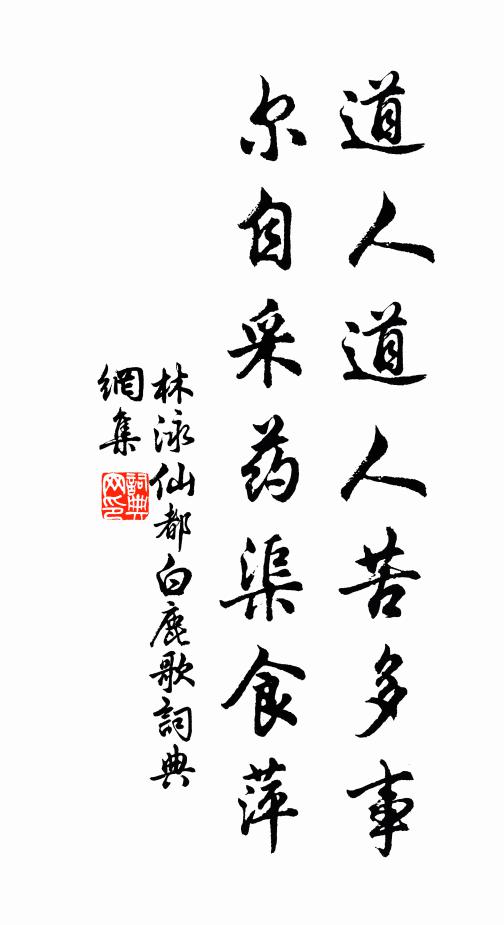 道人道人苦多事
尔自采药渠食萍
林泳仙都白鹿歌詞典
網集
詞典
网印